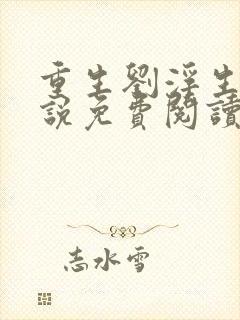 重生劉淫生
說免費閱讀
志水雪